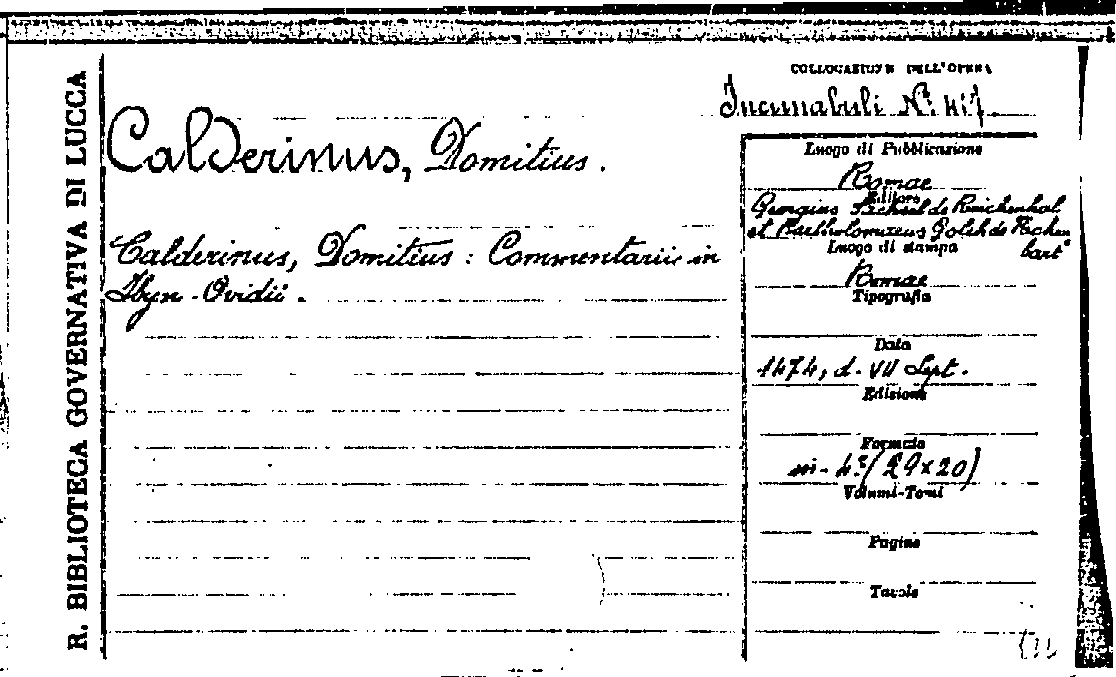 R. BIBLIOTECA GOVERNATIVA DI LUCCA
COLLOCAZIONE DELL'OPERA
Incunabuli N.
Calderinus, Domitius.
Calderinus, Domitius: Commentarii in
Ibyn Ovidii.
Luogo di Pubblicazione
Romae
Editore
Georgius Sachsel de Reichenhal
et Bartholomaeus Golsch de Hohen
bart
Luogo di stampa
Romae
Tipografia
Data
1474, d. VII Sept.
Edizione
Formato
in-4° (29x20)
Volumi-Tomi
Pagine
Tavole